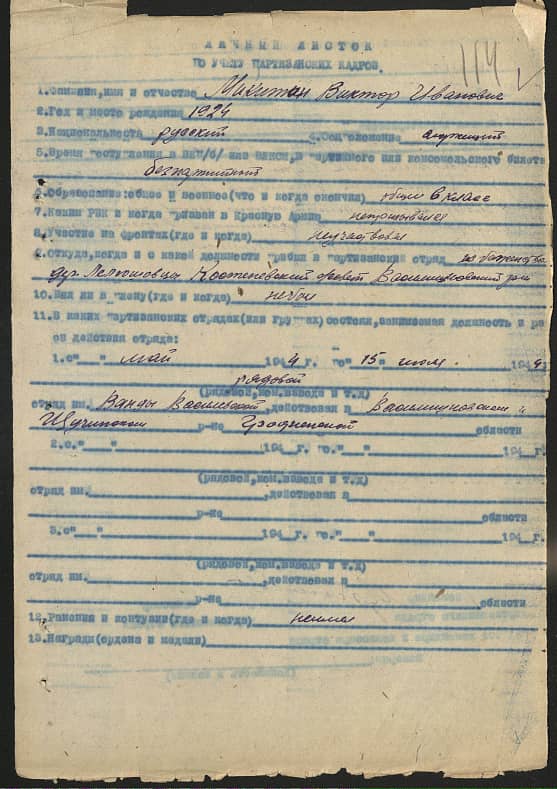 ЛИЧНЫЙ ЛИСТОК
ПО УЧЕТУ ПАРТИЗАНСКИХ КАДРОВ.
114
1.Фамилия,имя и отчество Микитан Виктор Иванович
2.Год и место рождения 1924
3.Национальность русский 4.Соцположение служащий
5.Время поступления в ВКП/б/ или ВЛКСМ,№ партийного или комсомольского билета
безпартийный
6.Образование:общее и военное(что и когда окончил) общее 6 класс
7.Каким РВК и когда призван в Красную Армию непризывался
8.Участие на фронтах(где и когда) неучаствовал
9.Откуда,когда и с какой должности прибыл в партизанский отряд
дер. Василишковский
10.Был ли в плену(где и когда) небыл
11.В каких партизанских отрядах(или группах)состоял,занимаемая должность и ра
он действия отряда:
1.с"___" май 1944 г. по" 15" июль 194
рядовой
(рядовой,ком.взвода и т.д)
отряд им. Ванды Василевской,действовал в Василишковском и
Щучинском р-не Гродненской области
2.с."___" 194_г. по."___" 194_г.
(рядовой,ком.взвода и т.д)
отряд им. ,действовал в
р-не области
3.с"___" 194_г. по."___" 194_г.
(рядовой,ком.взвода и т.д)
отряд им. ,действовал в
р-не области
12.Ранения и контузии(где и когда) неимел
13.Награды(ордена и медали)